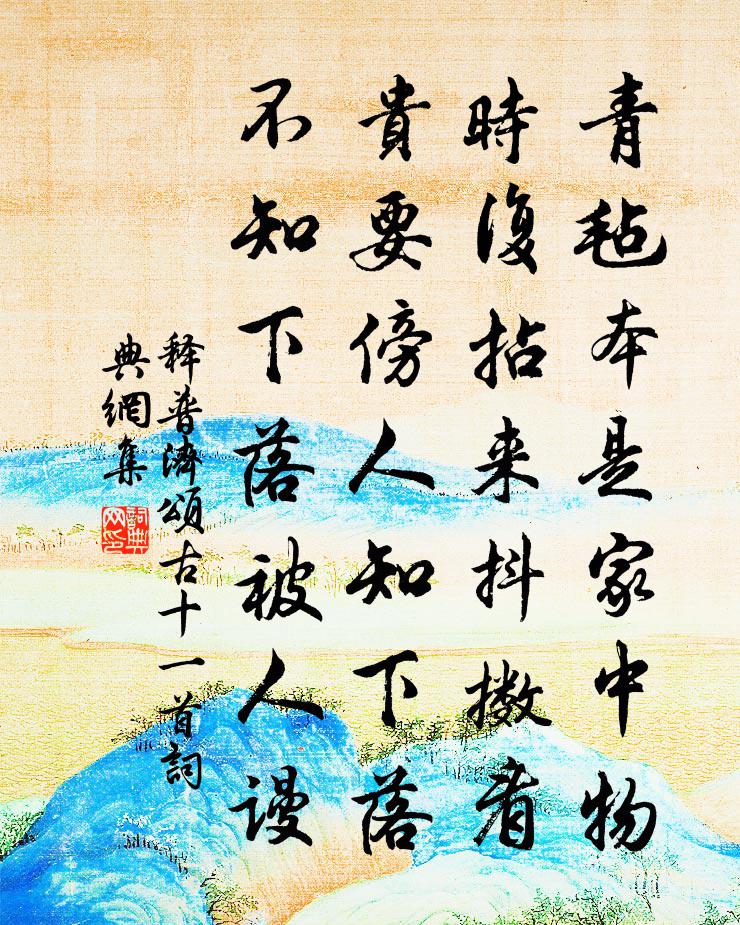 青氊本是家中物
時復拈来抖擻看
貴要傍人知下落
不知下落被人謾
释普濟頌古十一首詞
典網集
詞典
网印